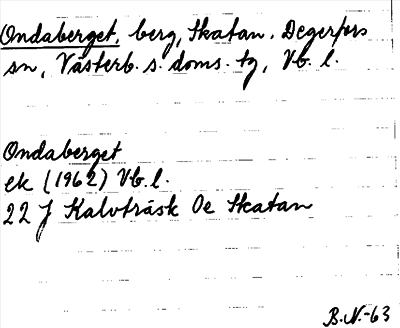 Ondaberget, berg, Skatan. Degerfors
sn, Västerb. s. doms. tg, Vb. l.
Ondaberget
ek (1962) Vb. l.
22 J Kalvträsk Oe Skatan
B.N.-63